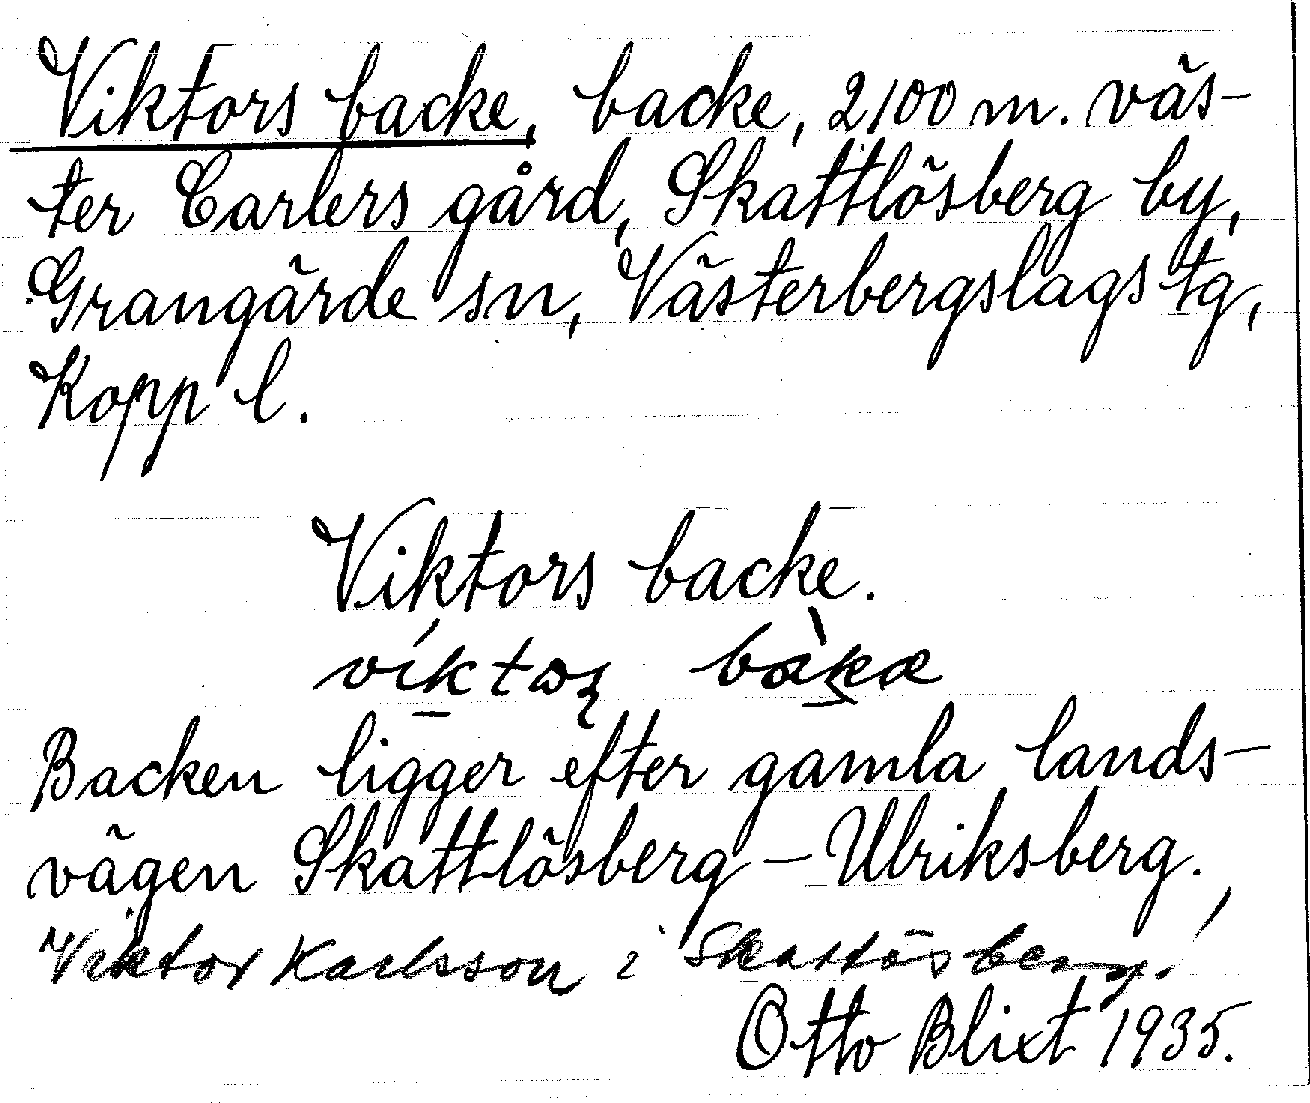 Viktors backe, backe, 2100 m. väs-
ter Carlers gård, Skattlösberg by,
Grangärde sn, Västerbergslags tg,
Kopp l.
Viktors backe.
Backen ligger efter gamla lands-
vägen Skattlösberg - Ulriksberg.
Viktor Karlsson i Skattlösberg.
Otto Blixt 1935.